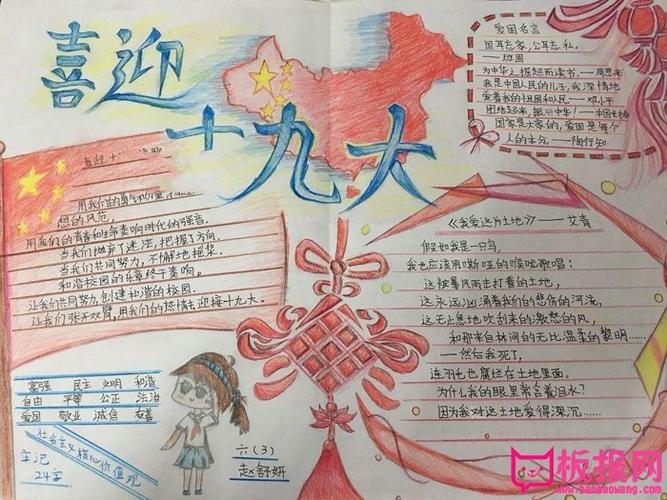 喜迎
十九大
爱国名言
国耳忘家,公耳忘私。
——班固
为中华之崛起而读书——周恩来
我是中国人民的儿子,我深情地
爱着我的祖国和人民——邓小平
团结起来,振兴中华!
国家是大家的,爱国是每个
人的本分。——陶行知
喜迎十
用我们的勇气和
想的风范,
用我们的青春和生命奏响时代的强音。
当我们抛弃了迷茫,把握了方向
当我们共同努力,不懈地摇桨。
和谐校园的乐章终于奏响。
让我们共同努力创建和谐的校园。
让我们张开双臂,用我们的热情去迎接十九大。
《我爱这片土地》——艾青
假如我是一只鸟,
我也应该用嘶哑的喉咙歌唱:
这被暴风雨击打着的土地,
这永远汹涌着我们的悲伤的河流,
这无止息地吹刮来的激愤的风,
和那来自林间的无比温柔的黎明……
——然后我死了,
连羽毛也腐烂在土地里面。
为什么我的眼里常含着泪水?
因为我对这土地爱得深沉……
富强 民主 文明 和谐
自由 平等 公正 法治
爱国 敬业 诚信 友善
社会主义核心价值观
牢记
24字
六(3)
赵舒妍
板报网
www.banbaowang.com